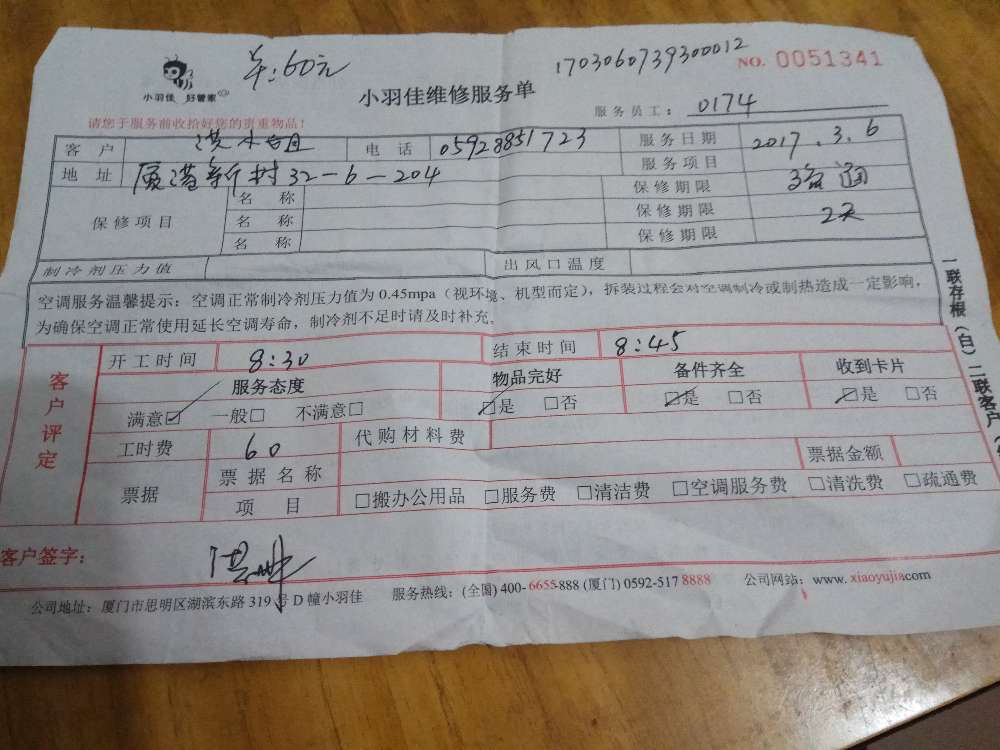 单:60元
1703060739300012
NO. 0051341
小羽佳 好管家
小羽佳维修服务单
服务员工: 0174
请您于服务前收拾好您的贵重物品!
客户 洪小姐 电话 05928851723 服务日期 2017.3.6
地址 厦港新村32-6-204 服务项目 疏通
保修项目 名称 保修期限 2天
名称 保修期限
名称 保修期限
制冷剂压力值 出风口温度
空调服务温馨提示:空调正常制冷剂压力值为0.45mpa(视环境、机型而定),拆装过程会对空调制冷或制热造成一定影响,
为确保空调正常使用延长空调寿命,制冷剂不足时请及时补充。
一联存根(白)二联客户
客户评定
开工时间 8:30 结束时间 8:45
服务态度 物品完好 备件齐全 收到卡片
满意☑ 一般□ 不满意□ ☑是 □否 ☑是 □否 ☑是 □否
工时费 60 代购材料费
票据 票据名称 票据金额
项目 □搬办公用品 □服务费 □清洁费 □空调服务费 □清洗费 □疏通费
客户签字: 洪
公司地址:厦门市思明区湖滨东路319号D幢小羽佳 服务热线:(全国)400-6655-888 (厦门)0592-5178888 公司网站:www.xiaoyujia.com